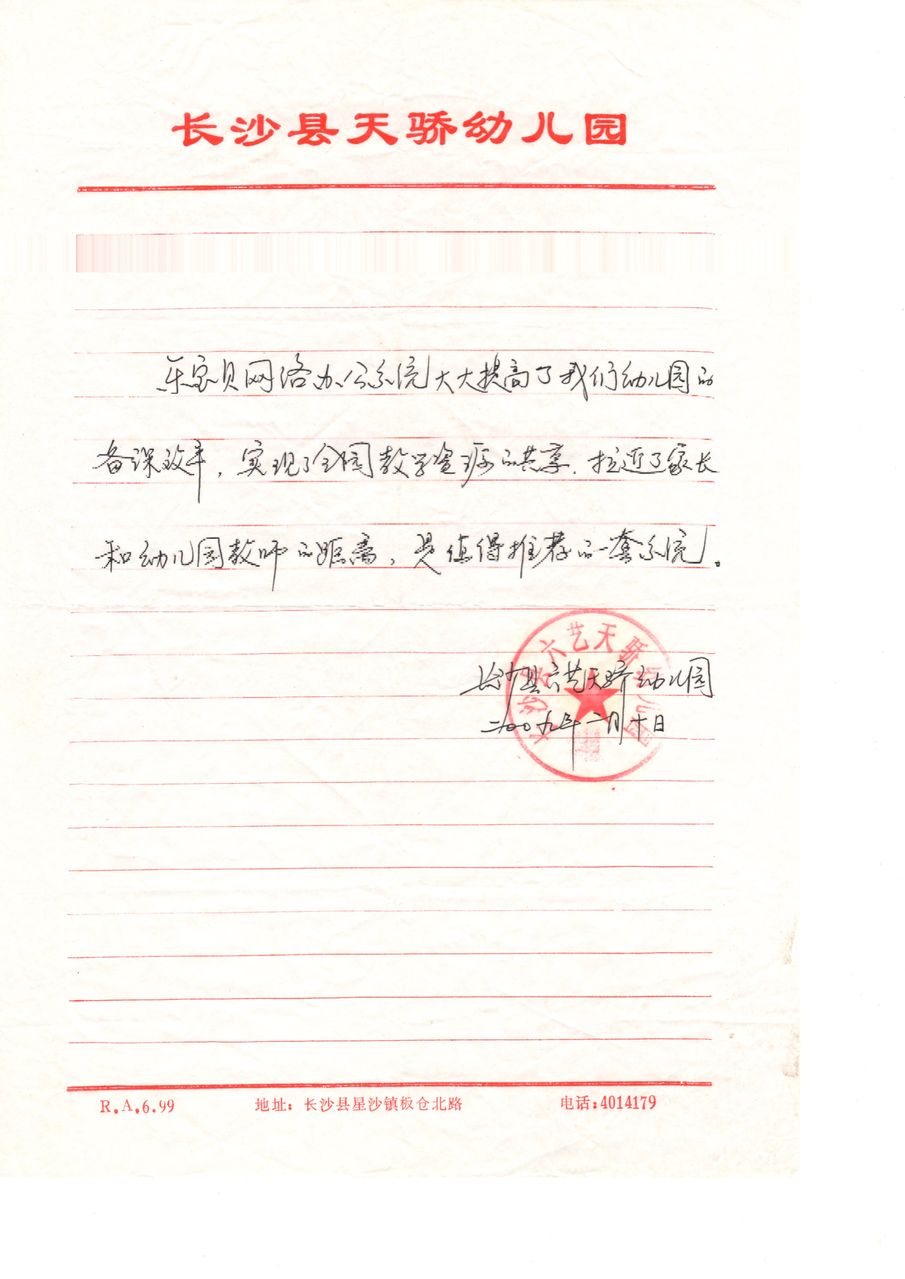 长沙县天骄幼儿园
乐宝贝网络办公系统大大提高了我们幼儿园的
备课效率，实现了全园教学资源的共享.拉近了家长
和幼儿园教师的距离，是值得推荐的一套系统。
长沙县六艺天骄幼儿园
长沙县六艺天骄幼儿园
二00九年二月十日
R.A.6.99 地址：长沙县星沙镇板仓北路 电话：4014179